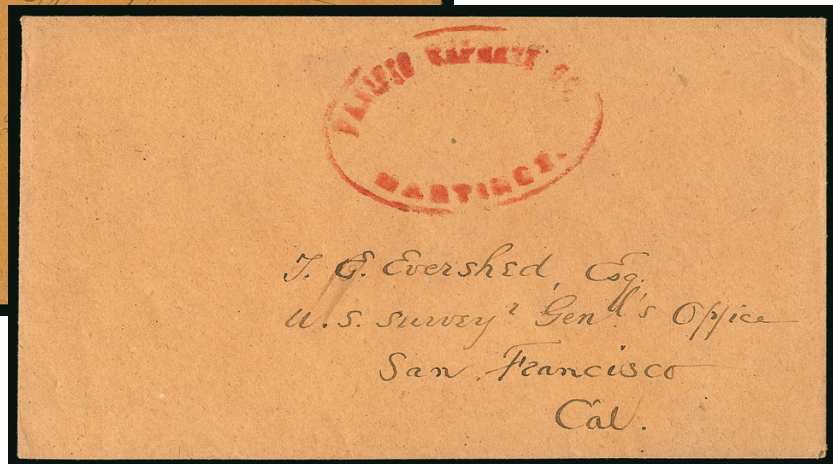 PACIFIC EXPRESS CO.
MARTINEZ.
T. E. Evershed, Esq.
U. S. Survey r Gen'l's Office
San Francisco
Cal.